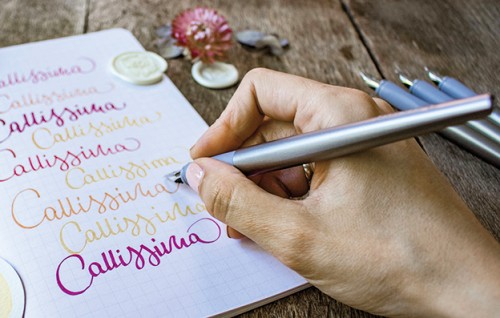 Callissima
Callissima
Callissima
Callissima
Callissima
Callissim
Callissima
Callissima
Callissima